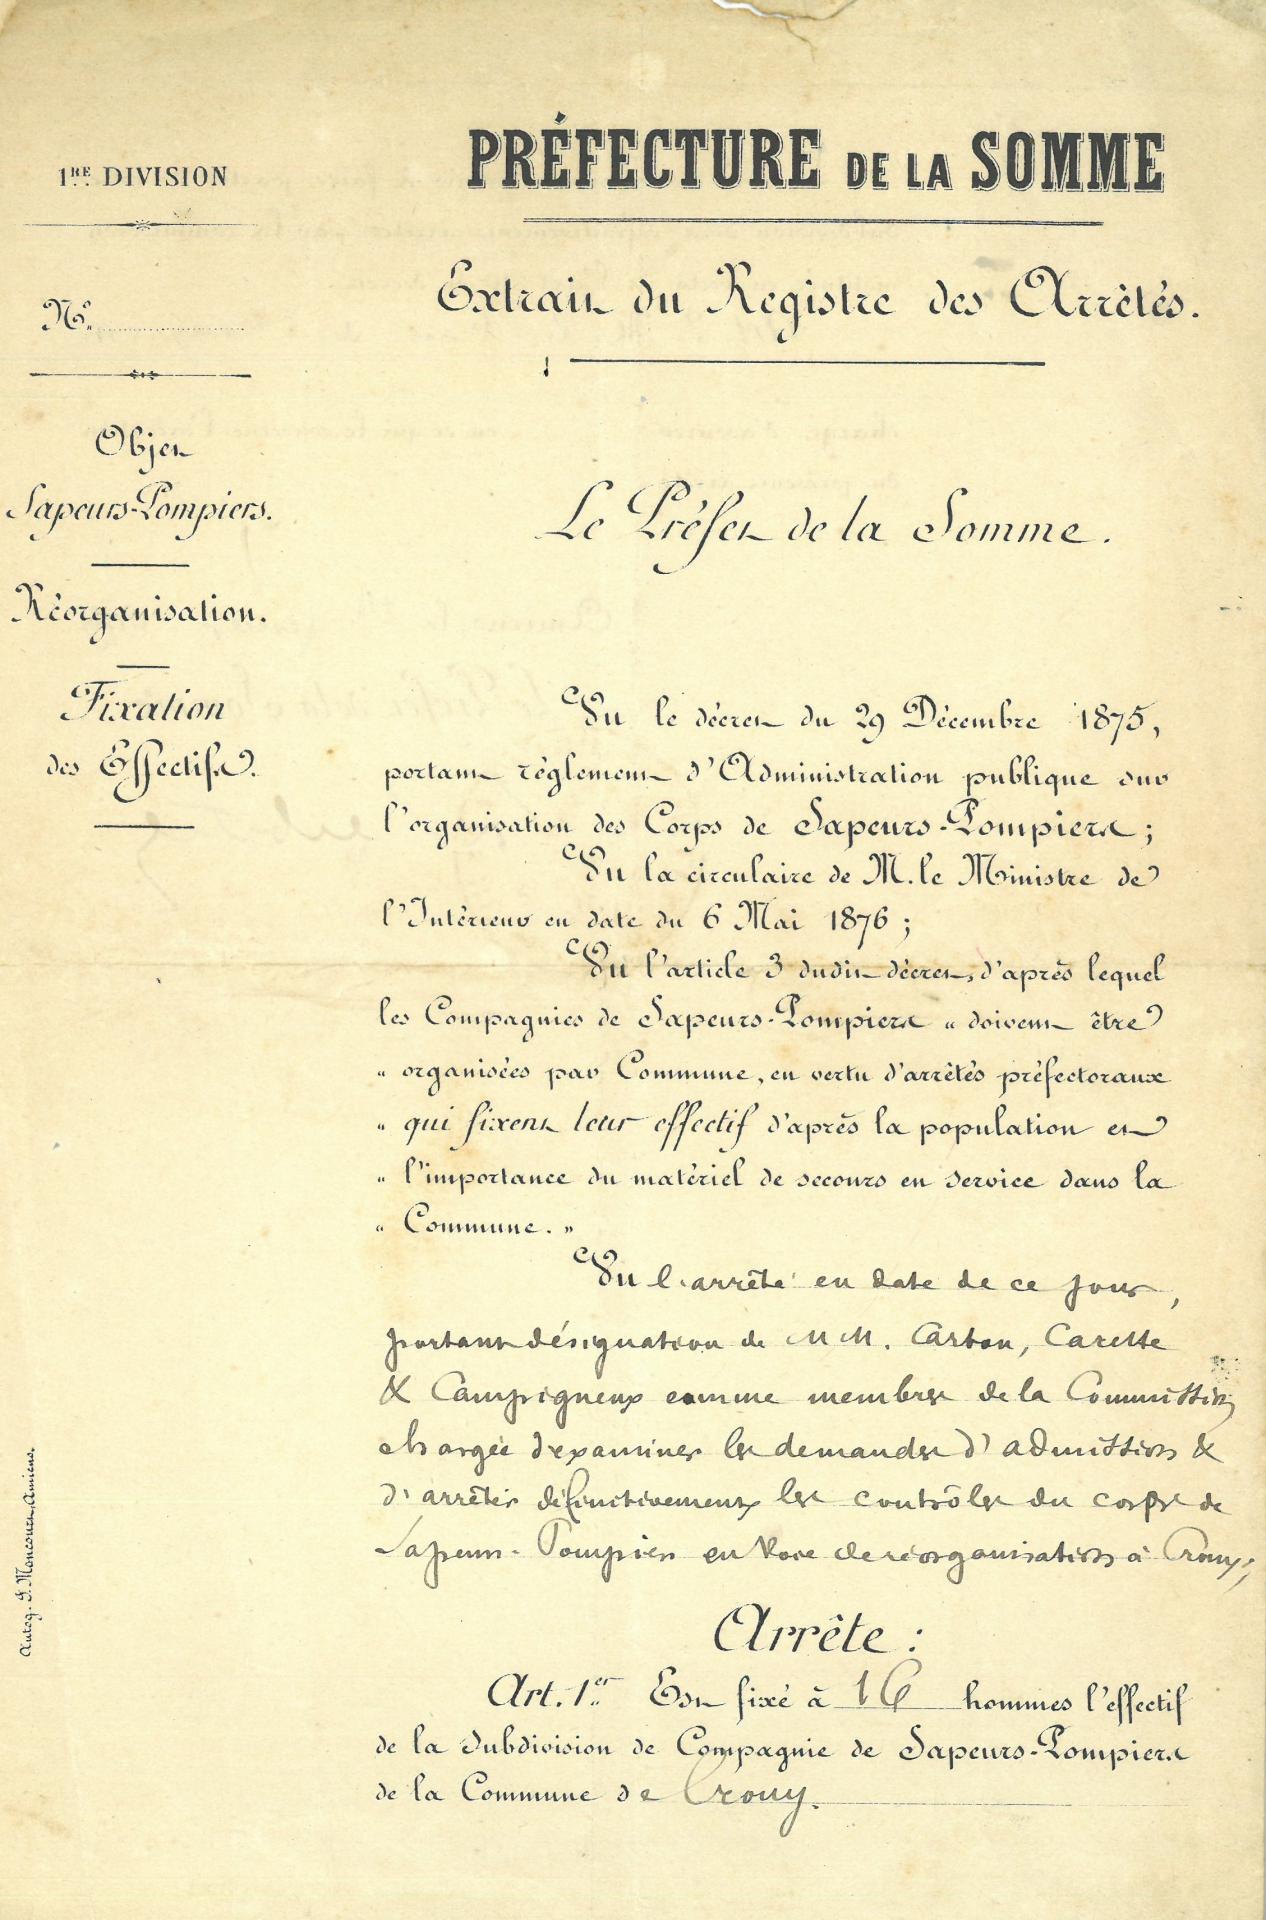 PRÉFECTURE DE LA SOMME
1RE DIVISION
Extrait du Registre des Arrêtés.
No.
Objet
Sapeurs-Pompiers.
Réorganisation.
Fixation
des Effectifs.
Le Préfet de la Somme.
Vu le décret du 29 Décembre 1875,
portant règlement d'Administration publique sur
l'organisation des Corps de Sapeurs-Pompiers ;
Vu la circulaire de M. le Ministre de
l'Intérieur en date du 6 Mai 1876 ;
Vu l'article 3 dudit décret, d'après lequel
les Compagnies de Sapeurs-Pompiers « doivent être
« organisées par Commune, en vertu d'arrêtés préfectoraux
« qui fixent leur effectif d'après la population et
« l'importance du matériel de secours en service dans la
« Commune. »
Vu l'arrêté en date de ce jour,
portant désignation de MM. Carton, Carette
& Campigneux comme membres de la Commission
chargée d'examiner les demandes d'admission &
d'arrêter définitivement les contrôles du corps de
Sapeurs-Pompiers en voie de réorganisation à Crouy,
Arrête :
Art. 1er. Est fixé à 16 hommes l'effectif
de la Subdivision de Compagnie de Sapeurs-Pompiers
de la Commune de Crouy.
Autog. Moncourt, Amiens.